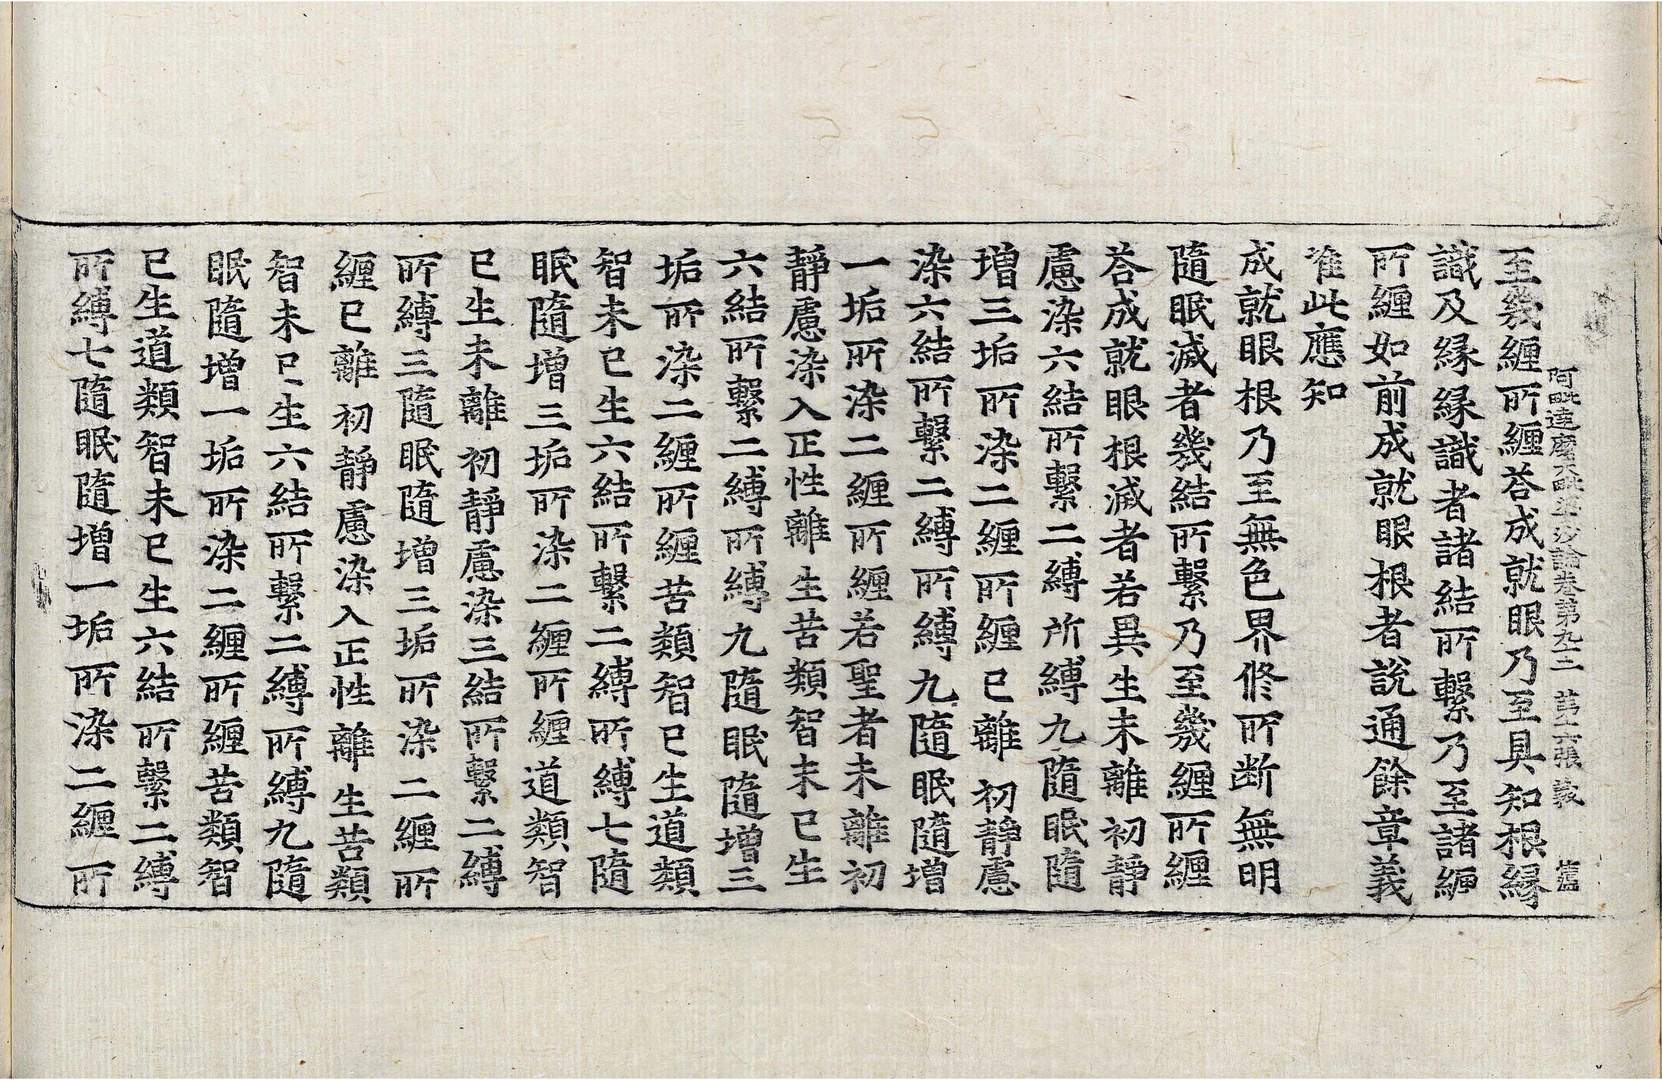 阿毗達磨大毗婆沙論卷第九十二 第十六張 義
至幾纏所纏荅成就眼乃至具知根緣
識及緣緣識者諸結所繫乃至諸纏
所纏如前成就眼根者說通餘章義
准此應知
成就眼根乃至無色界修所断無明
隨眠滅者幾結所繫乃至幾纏所纏
荅成就眼根滅者若異生未離初靜
慮染六結所繫二縛所縛九隨眠隨
增三垢所染二纏所纏已離初靜慮
染六結所繫二縛所縛九隨眠隨增
一垢所染二纏所纏若聖者未離初
靜慮染入正性離生苦類智未已生
六結所繫二縛所縛九隨眠隨增三
垢所染二纏所纏苦類智已生道類
智未已生六結所繫二縛所縛七隨
眠隨增三垢所染二纏所纏道類智
已生未離初靜慮染三結所繫二縛
所縛三隨眠隨增三垢所染二纏所
纏已離初靜慮染入正性離生苦類
智未已生六結所繫二縛所縛九隨
眠隨增一垢所染二纏所纏苦類智
已生道類智未已生六結所繫二縛
所縛七隨眠隨增一垢所染二纏所